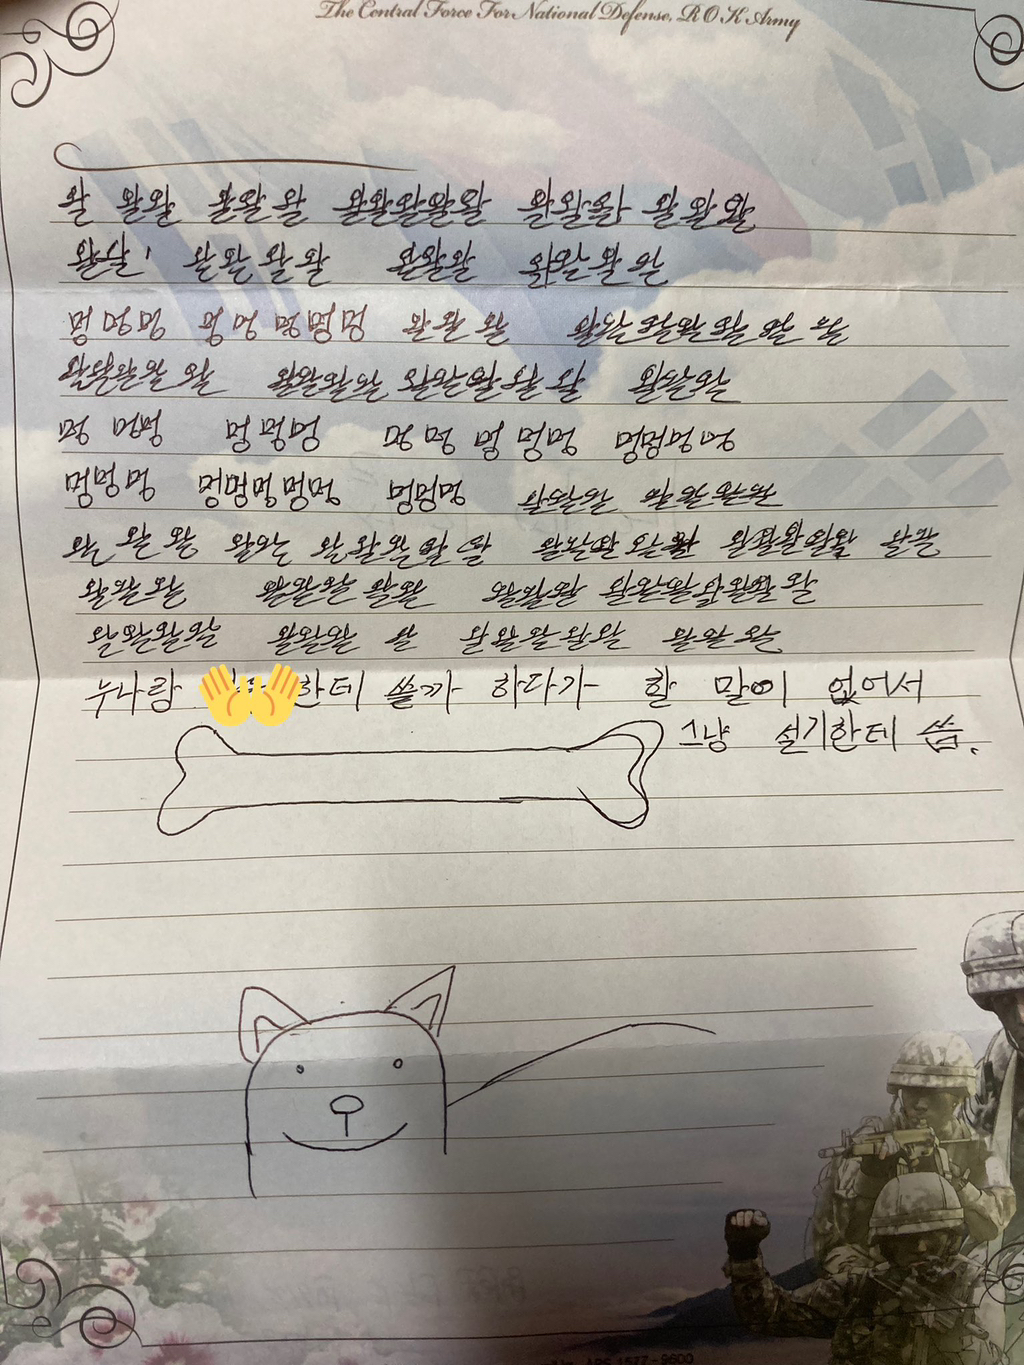 The Central Force For National Defense, R O K Army
왈 왈왈 왈왈 왈 왈왈왈왈왈 왈왈왈 왈 왈 왈
왈왈! 왈왈 왈왈 왈왈왈 왈왈 왈 왈
멍 멍멍 멍 멍 멍멍멍 왈 왈 왈 왈왈 왈왈 왈 왈 왈
왈왈왈왈 왈 왈왈왈왈 왈왈왈왈 왈 왈왈왈
멍 멍멍 멍 멍멍 멍 멍 멍 멍멍 멍멍멍멍
멍멍멍 멍멍멍멍멍 멍멍멍 왈왈왈 왈왈 왈왈
왈 왈 왈 왈왈 왈 왈 왈 왈 왈 왈왈왈 왈왈 왈왈왈왈왈 왈왈
왈왈왈 왈왈왈 왈왈 왈왈왈 왈왈왈왈왈왈 왈
왈왈왈왈 왈왈왈 왈 왈왈왈왈왈 왈왈 왈
누나랑 한테 쓸까 하다가 할 말이 없어서
그냥 설기한테 씀.
1577-9600